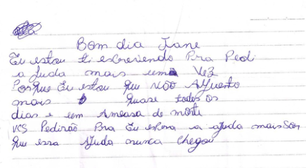 Bom dia Jane
Eu estou te escrevendo Pra Pedi
a Juda mais uma Vez
Porque Eu estou que não Aguento
mais Quase todos os
dias e um Ameasa de morte
vcs Pedirão Pra Eu a ajuda mais
Que essa Ajuda nunca chegou